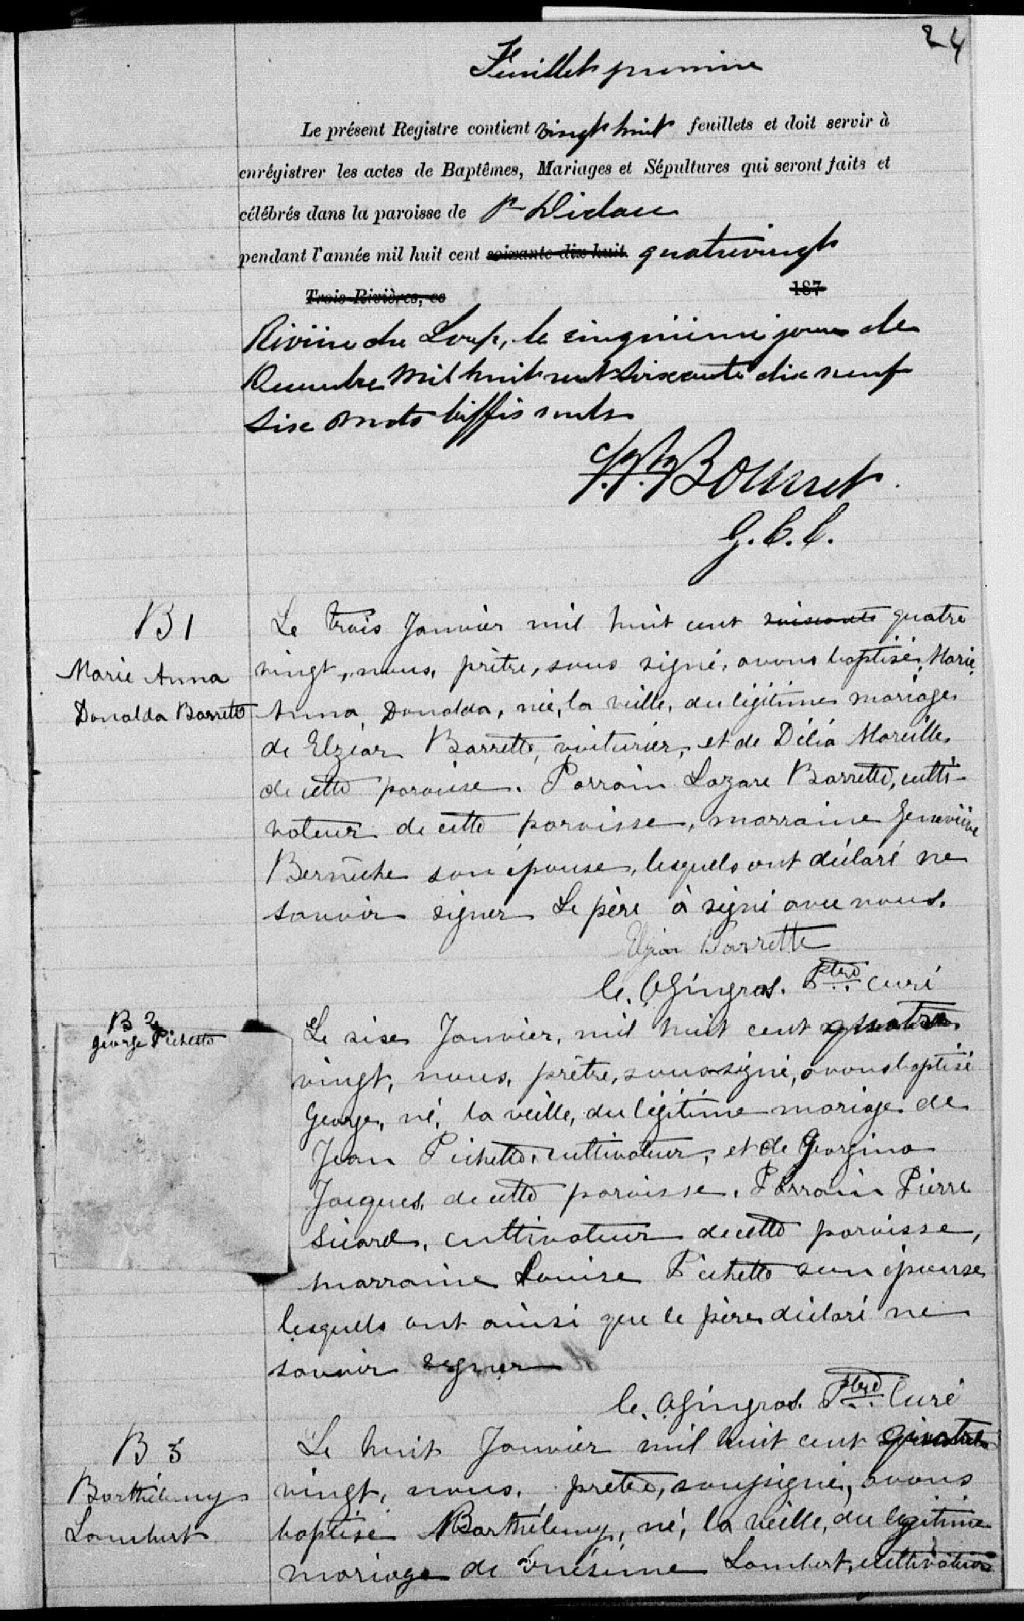 24
Feuillet premier
Le présent Registre contient vingt huit feuillets et doit servir à
enrégistrer les actes de Baptêmes, Mariages et Sépultures qui seront faits et
célébrés dans la paroisse de St Didace
pendant l'année mil huit cent soixante-dix-huit quatrevingt
Trois-Rivières, ce 187
Rivière du Loup, le cinquième jour de
Décembre mil huit cent soixante dix neuf
Six mots biffés nuls
Bourret
G. C. C.
B 1
Marie Anna
Donalda Barrette
Le trois Janvier mil huit cent soixante quatre
vingt, nous, prêtre, sous signé, avons baptisé Marie
Anna Donalda, née, la veille, du légitime mariage
de Elzéar Barrette, voiturier, et de Délia Mareille
de cette paroisse. Parrain Lazare Barrette, culti-
vateur de cette paroisse, marraine Geneviève
Bernèche son épouse, lesquels ont déclaré ne
savoir signer Le père a signé avec nous.
Elzéar Barrette
C. O. Gingras. Ptre Curé
B 2
George Pichette
Le six Janvier, mil huit cent quatre
vingt, nous, prêtre, soussigné, avons baptisé
George, né, la veille, du légitime mariage de
Jean Pichette, cultivateur, et de Georgina
Jacques, de cette paroisse. Parrain Pierre
Sicard, cultivateur de cette paroisse,
marraine Louise Pichette son épouse
lesquels ont ainsi que le père déclaré ne
savoir signer
C. O. Gingras. Ptre Curé
B 3
Barthélemy
Lambert
Le huit Janvier mil huit cent quatre
vingt, nous, prêtre, soussigné, avons
baptisé Barthélemy, né, la veille, du légitime
mariage de Onésime Lambert, cultivateur